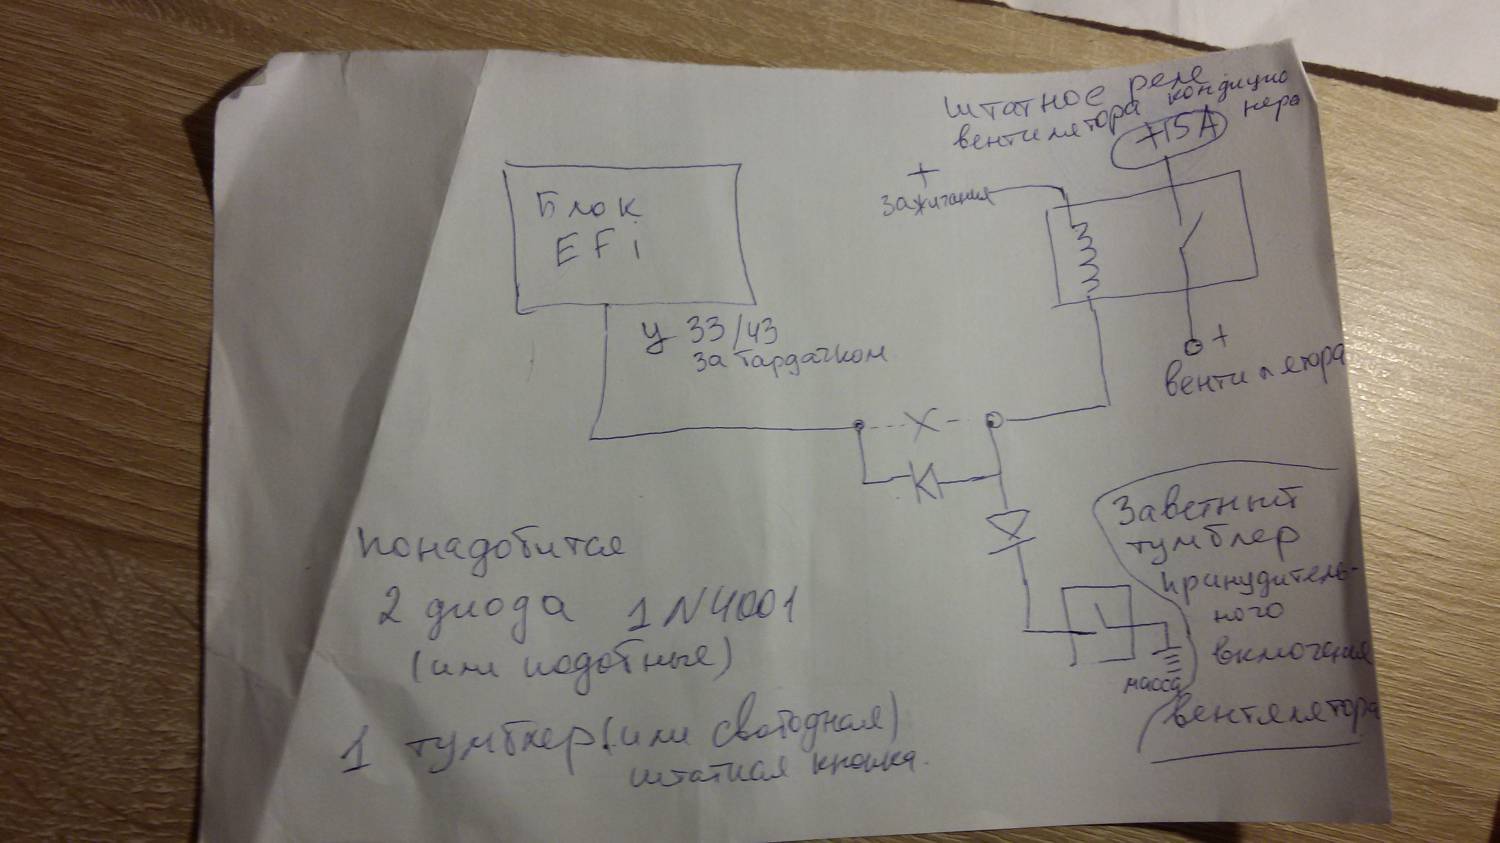 штатное реле
вентилятора кондицио
нера
+15А
+
зажигания
Блок
EFi
у 33/43
за бардачком
+
вентилятора
Заветный
тумблер
принудитель-
ного
включения
вентилятора
масса
понадобится
2 диода 1N4001
(или подобные)
1 тумблер (или свободная)
штатная кнопка.